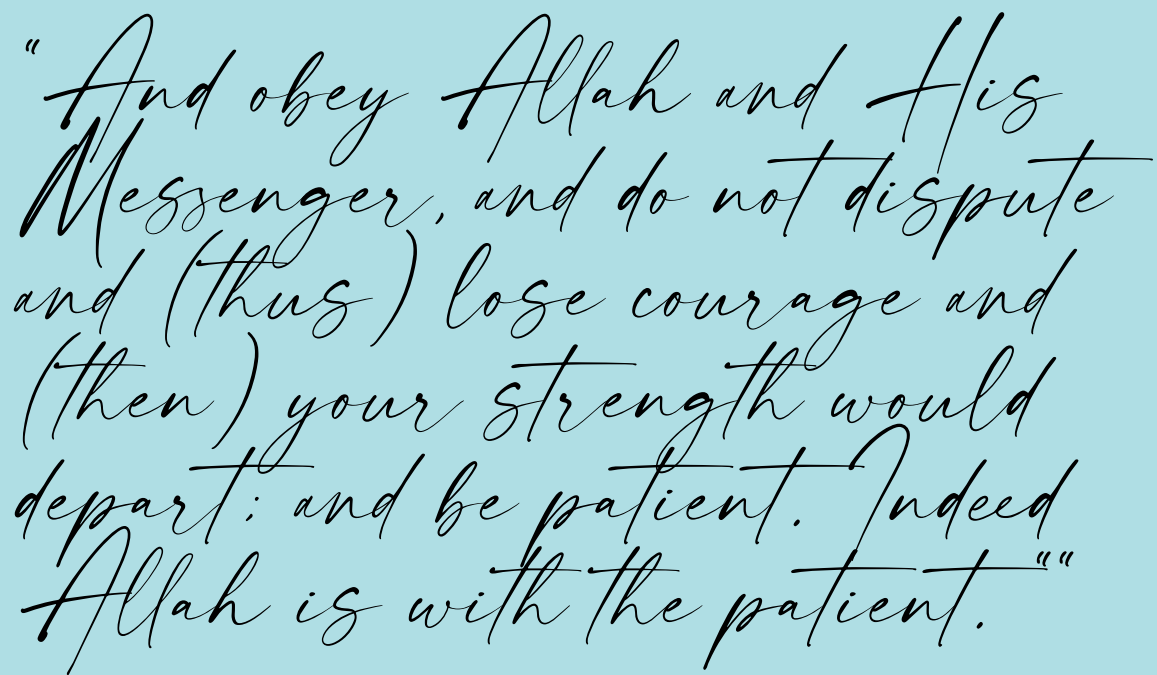 "And obey Allah and His
Messenger, and do not dispute
and (thus) lose courage and
(then) your strength would
depart; and be patient. Indeed
Allah is with the patient.""